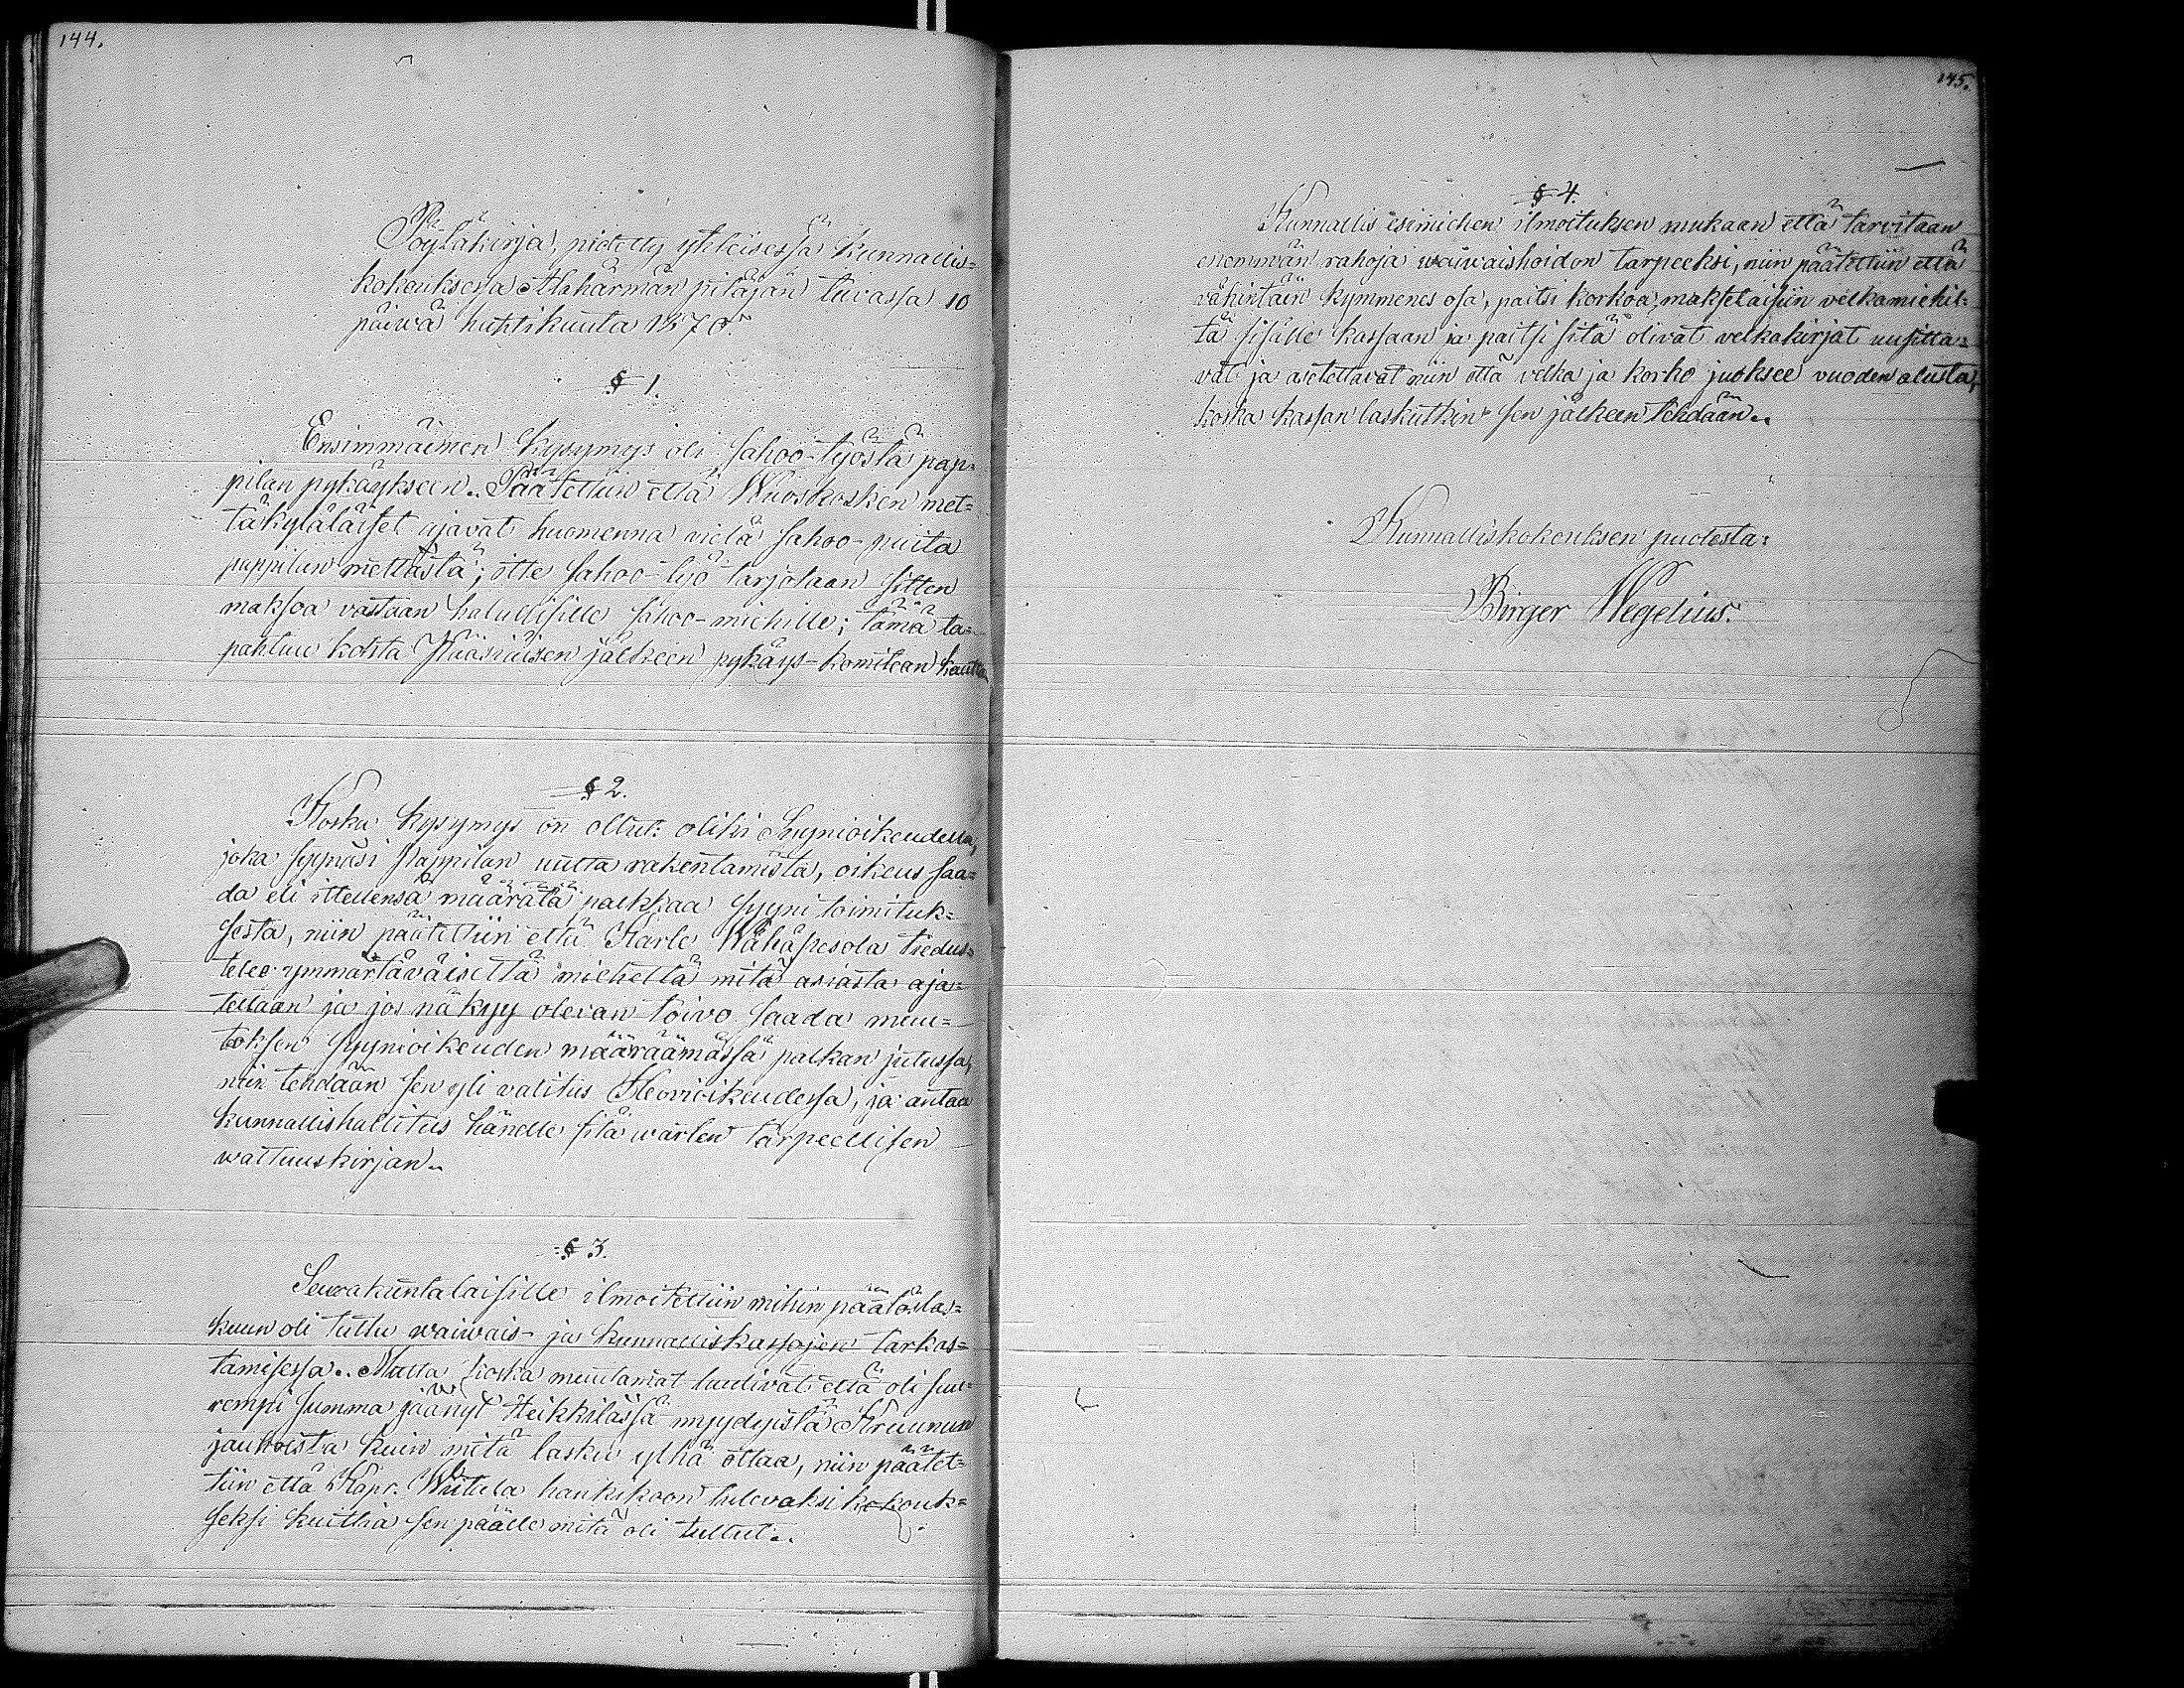 144.
Pöytäkirja, pidetty yhteisessä Kunnallis=
kokouksessa Alahärmän pitäjän tuvassa 10
päivä huhtikuuta 1870.
§ 1.
Ensimmäinen kysymys oli sahoo-työstä pap=
pilan pykäykseen. Päätettiin että Wuoskosken met=
täkyläläiset ajavat huomenna vielä sahoo-puita
pappilan mettästä; itte sahoo-työ tarjotaan sitten
maksoa vastaan halullisille sahoo-miehille; tämä ta=
pahtuu kohta Pääsiäisen jälkeen pykäys-komitean kautta
§ 2.
Koska kysymys on ollut: oliki Syynioikeudella,
joka syynäsi Pappilan uutta rakentamista, oikeus saa=
da eli ittellensä määrätä palkkaa syyni toimituk=
sesta, niin päätettiin että Karle Wähäpesola tiedus=
telee ymmärtäväiseltä mieheltä mitä asiasta aja=
tellaan ja jos näkyy olevan toivo saada muu=
toksen syynioikeuden määräämässä palkan jutussa,
niin tehdään sen yli valitus Hovioikeudessa, ja antaa
kunnallishallitus hänelle sitä warten tarpeellisen
waltuuskirjan.
§ 3.
Seurakuntalaisille ilmoitettiin mihin päätöslas=
kuun oli tultu waiwais- ja kunnalliskassojen tarkas=
tamisessa. Mutta koska muutamat luulivat että oli suu=
rempi summa jäänyt Heikkilässä myydyistä Kruunun
jauhoista kuin mitä lasku ylhä ottaa, niin päätet=
tiin että Kapr. Wiitala hankikoon tulevaksi kokouk=
seksi kuittia sen päälle mitä oli tullut.
145.
§ 4.
Kunnallis esimiehen ilmoituksen mukaan että tarvitaan
enemmän rahoja waiwaishoidon tarpeeksi, niin päätettiin että
vähintäin kymmenes osa, paitsi korkoa, maksetaisiin velkamiehil=
tä sisälle kassaan ja paitsi sitä olivat velkakirjat uusitta=
vat ja asetettavat niin että velka ja korko juoksee vuoden alusta,
koska kassan laskutkin sen jälkeen tehdään.
Kunnalliskokouksen puolesta:
Birger Wegelius.